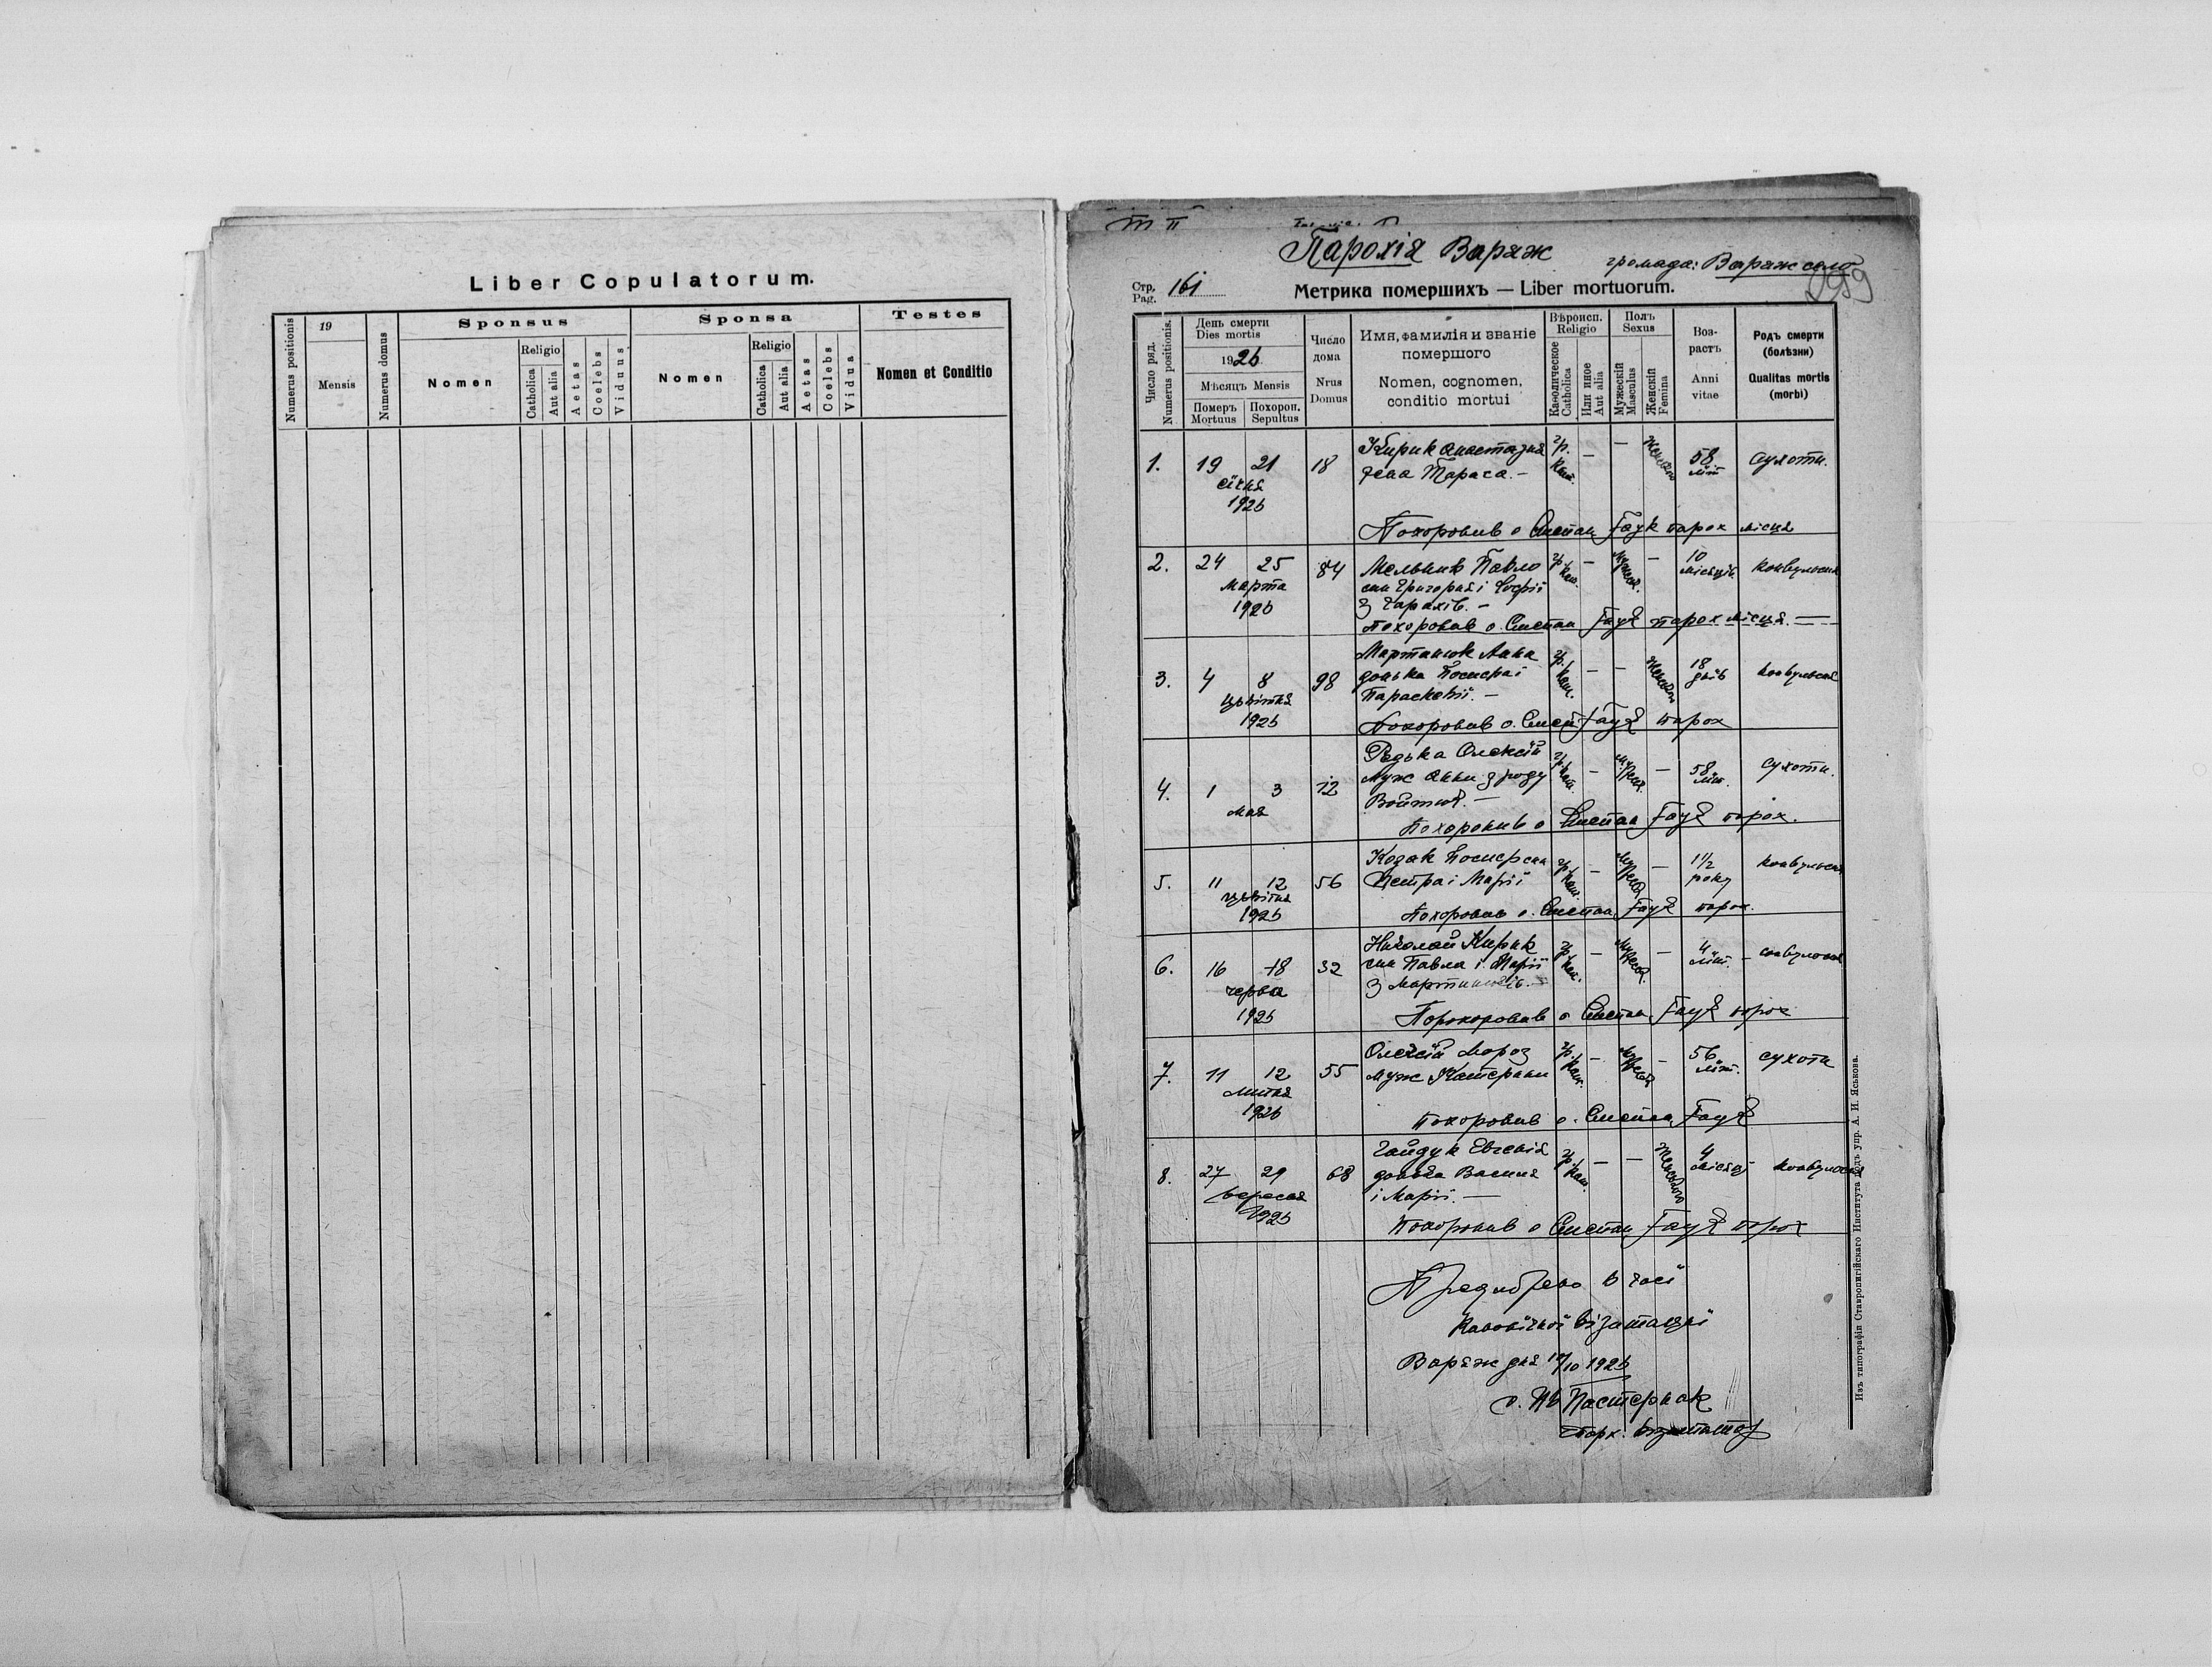 Liber Copulatorum.
Numerus positionis
19
Mensis
Numerus domus
Sponsus
Nomen
Religio
Catholica
Aut alia
Aetas
Coelebs
Viduus
Sponsa
Nomen
Religio
Catholica
Aut alia
Aetas
Coelebs
Vidua
Testes
Nomen et Conditio
Парохія Варяж
громада: Варяж село
299
Стр. Pag. 161
Метрика помершихъ — Liber mortuorum.
Число ряд.
Numerus positionis.
День смерти
Dies mortis
1926
Мѣсяцъ Mensis
Померъ Mortuus
Похорон. Sepultus
Число дома
Nrus Domus
Имя, фамилія и званіе помершого
Nomen, cognomen, conditio mortui
Вѣроисп. Religio
Каѳолическое Catholica
Или иное Aut alia
Полъ Sexus
Мужескій Masculus
Женскій Femina
Возрастъ
Anni vitae
Родъ смерти (болѣзни)
Qualitas mortis (morbi)
1. 19 21 18 Кирик Анастазия гр. кат. — — 58 літ сухоти.
січня жена Тараса. —
1926
Похоронив о Степан Гаук парох місця
2. 24 25 84 Мельник Павло гр. кат. — — 10 місяців конвульсия
марта син Григория і Софії
1926 з Гарахів. —
Похоронив о. Степан парох місця. —
3. 4 8 98 Мартинюк Анна гр. кат. — — 18 днів конвульсия
цьвітня донька
1926 Параскевії. —
Похоронив о. парох
4. 1 3 12 Редька Олексій гр. кат. — — 58 літ. сухоти.
мая муж Анни з роду
Войтюк. —
Похоронив о Степан парох.
5. 11 12 56 Козак гр. кат. — — 1 1/2 року конвульсия
цьвітня Петра і Марії
1926
Похоронив о. Степан парох.
6. 16 18 32 Николай Кирик гр. кат. — — 4 літ. — конвульсия
червня син Павла і Марії
1926 з Мартинюків. —
о Степан парох
7. 11 12 55 Олексій Мороз гр. кат. — — 56 літ. сухоти
липня муж Катерини
1926
Похоронив о. Степан
8. 27 29 68 Гайдук Евгенія гр. кат. — — 4 місяці конвульсия
вересня донька Василя
1926 і Марії. —
Похоронив о Степан парох
в часі
канонічної візитації
Варяж дня 1926
о. Ів Пастернак
візитатор
Изъ типографіи Ставропигійскаго Института подъ упр. А. И. Яськова.